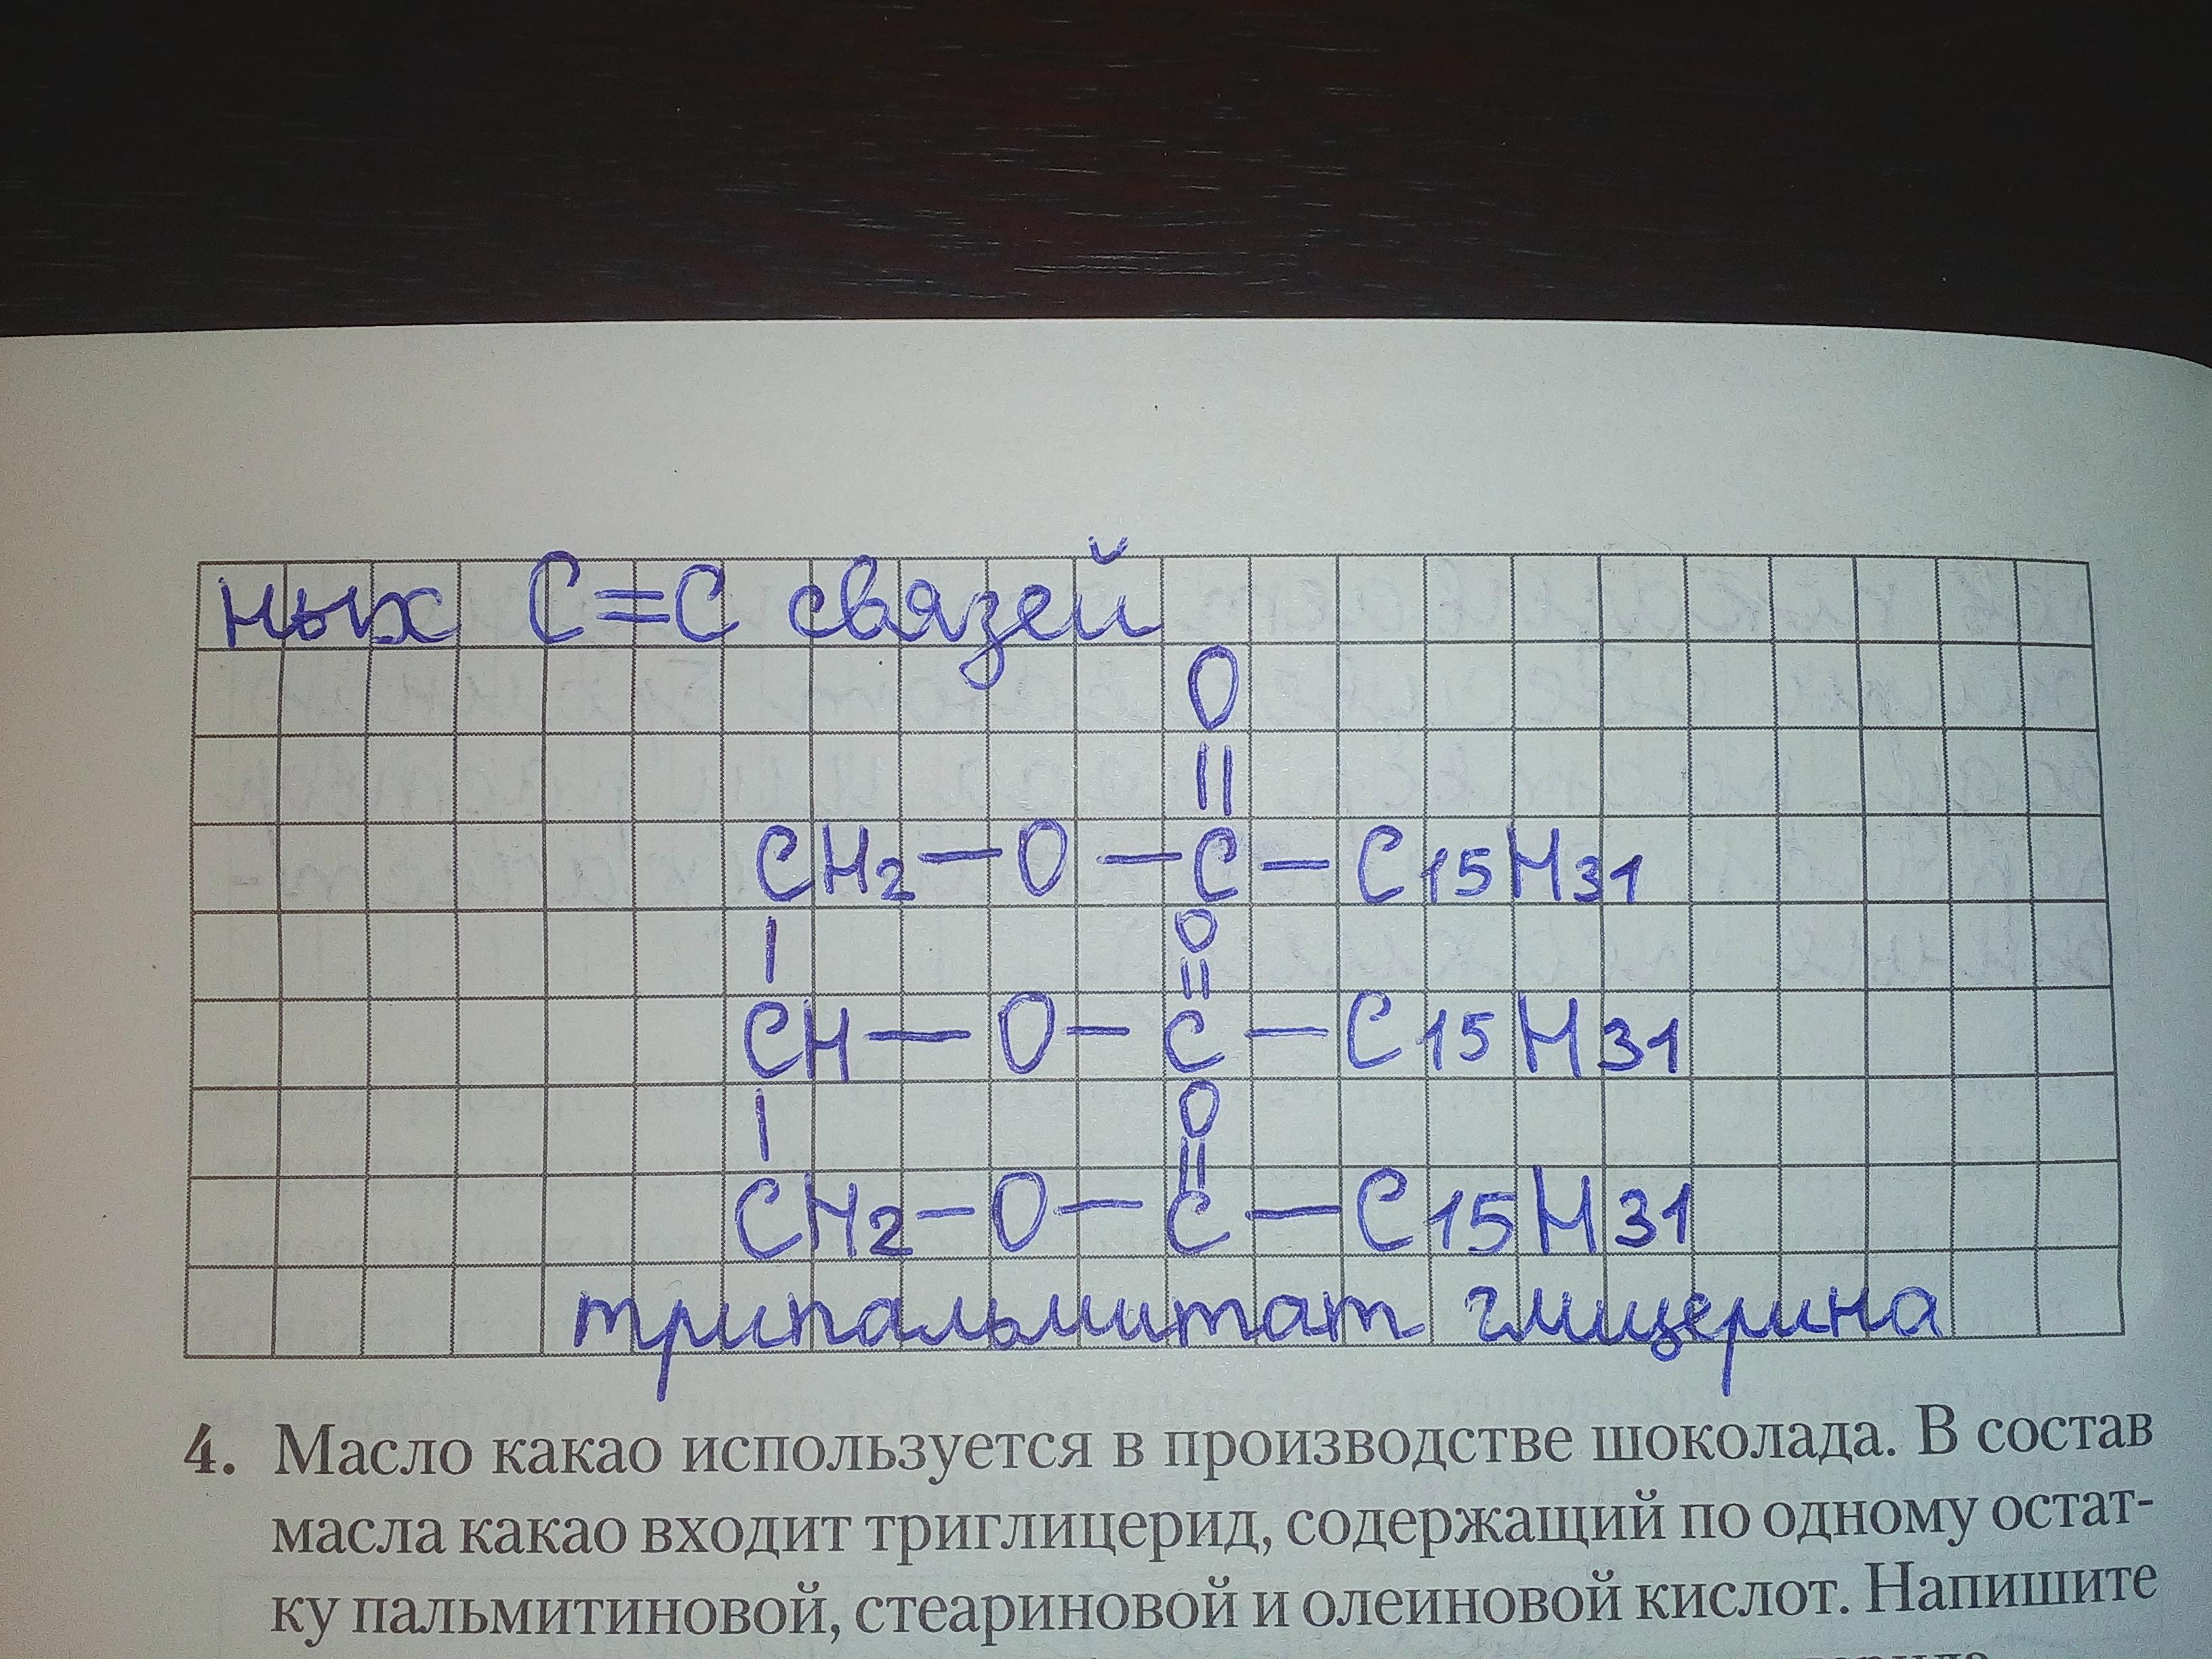 ных C=C связей
O
||
CH2—O—C—C15H31
| O
||
CH—O—C—C15H31
| O
||
CH2—O—C—C15H31
трипальмитат глицерина
4. Масло какао используется в производстве шоколада. В состав
масла какао входит триглицерид, содержащий по одному остат-
ку пальмитиновой, стеариновой и олеиновой кислот. Напишите